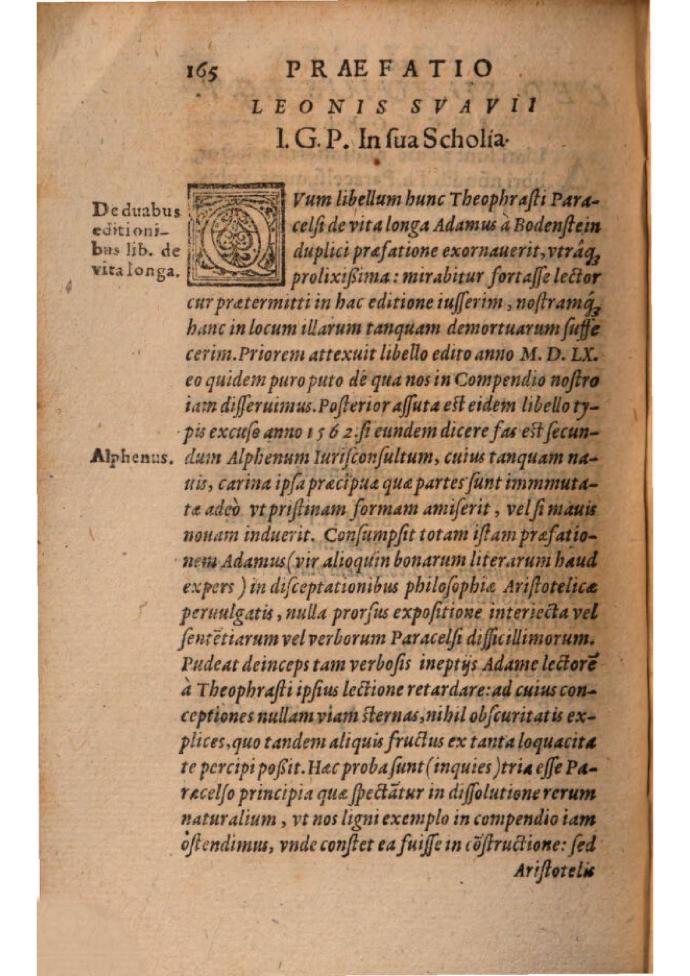 165 PRAEFATIO
LEONIS SVAVII
I. G. P. In sua Scholia.
De duabus
editioni-
bus lib. de
vita longa.
QVum libellum hunc Theophrasti Para-
celsi de vita longa Adamus à Bodenstein
duplici præfatione exornauerit, vtrâq₃
prolixißima: mirabitur fortasse lector
cur prætermitti in hac editione iusserim, nostramq́₃
hanc in locum illarum tanquam demortuarum suffe
cerim. Priorem attexuit libello edito anno M. D. LX.
eo quidem puro puto de qua nos in Compendio nostro
iam disseruimus. Posterior assuta est eidem libello ty-
pis excuso anno 1562. si eundem dicere fas est secun-
Alphenus.
dum Alphenum Iurisconsultum, cuius tanquam na-
uis, carina ipsa præcipuæ quæ partes sunt immmuta-
tæ adeò vt pristinam formam amiserit, vel si mauis
nouam induerit. Consumpsit totam istam præfatio-
nem Adamus (vir alioquin bonarum literarum haud
expers) in disceptationibus philosophiæ Aristotelicæ
peruulgatis, nulla prorsus expositione interiecta vel
sentētiarum vel verborum Paracelsi difficillimorum.
Pudeat deinceps tam verbosis ineptijs Adame lectorē
à Theophrasti ipsius lectione retardare: ad cuius con-
ceptiones nullam viam sternas, nihil obscuritatis ex-
plices, quo tandem aliquis fructus ex tanta loquacita
te percipi poßit. Hæc proba sunt (inquies) tria esse Pa-
racelso principia quæ spectātur in dissolutione rerum
naturalium, vt nos ligni exemplo in compendio iam
ostendimus, vnde constet ea fuisse in cōstructione: sed
Aristotelis